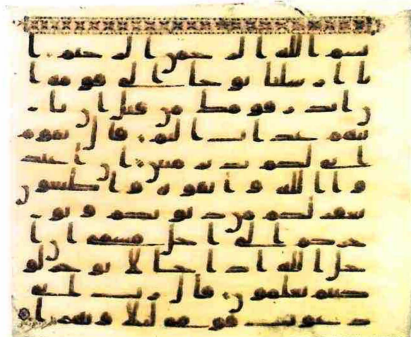 بسم الله الرحمن الرحيم ا
نا ارسلنا نوحا الى قومه ا
ن انذر قومك من قبل ان يا
تيهم عذاب اليم قال يقوم
انى لكم نذير مبين ان اعبد
وا الله واتقوه واطيعون
يغفر لكم من ذنوبكم ويو
خركم الى اجل مسمى ان ا
جل الله اذا جا لا يوخر لو
كنتم تعلمون قال رب انى
دعوت قومى ليلا ونهارا